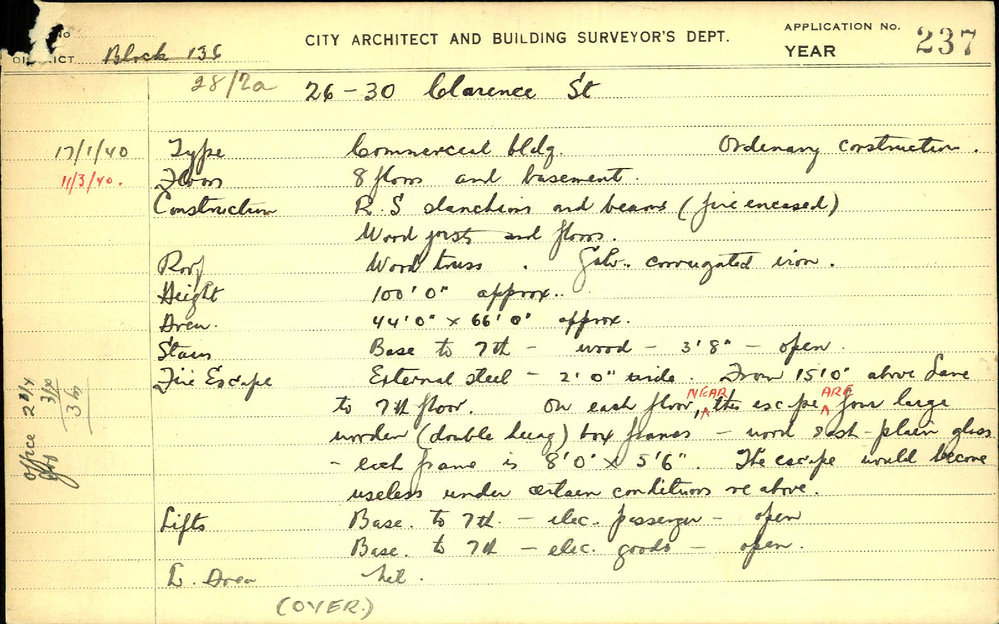 No
DISTRICT Block 136
CITY ARCHITECT AND BUILDING SURVEYOR'S DEPT.
APPLICATION No.
YEAR
237
28/2a 26-30 Clarence St
17/1/40 Type Commercial bldg. Ordinary construction.
11/3/40. Floors 8 floors and basement.
Construction R.S stanchions and beams (fire encased)
Wood joists and floors.
Roof Wood truss. Galv. corrugated iron.
Height 100'0" approx..
Area. 44'0" x 66'0" approx.
Stairs Base to 7th - wood - 3'8" - open.
Fire Escape External steel - 2'0" wide. From 15'0" above lane
to 7th floor. On each floor, NEAR the escape ARE four large
wooden (double hung) box frames - wood sash - plain glass
- each frame is 8'0" x 5'6". The escape would become
useless under certain conditions re above.
Lifts Base. to 7th - elec. passenger - open
Base. to 7th - elec. goods - open.
L. Area Nil.
(OVER.)
office